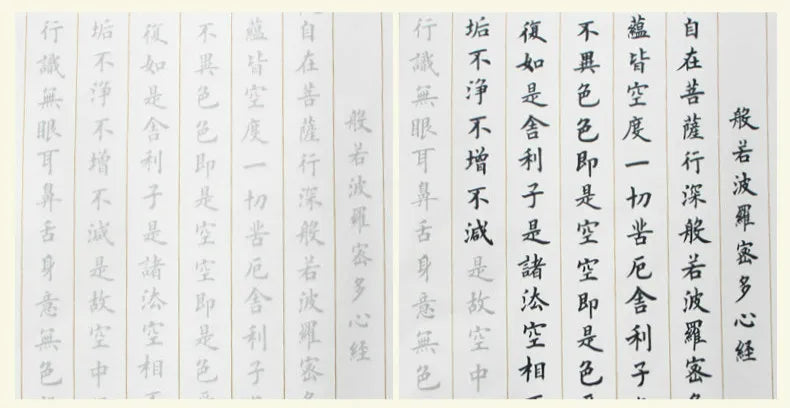 般若波羅密多心経
自在菩薩行深般若波羅密
蘊皆空度一切苦厄舎利子
不異色色即是空空即是色
復如是舎利子是諸法空相
垢不浄不增不減是故空中
行識無眼耳鼻舌身意無色
般若波羅密多心経
自在菩薩行深般若波羅密
蘊皆空度一切苦厄舎利子
不異色色即是空空即是色
復如是舎利子是諸法空相
垢不浄不增不減是故空中
行識無眼耳鼻舌身意無色